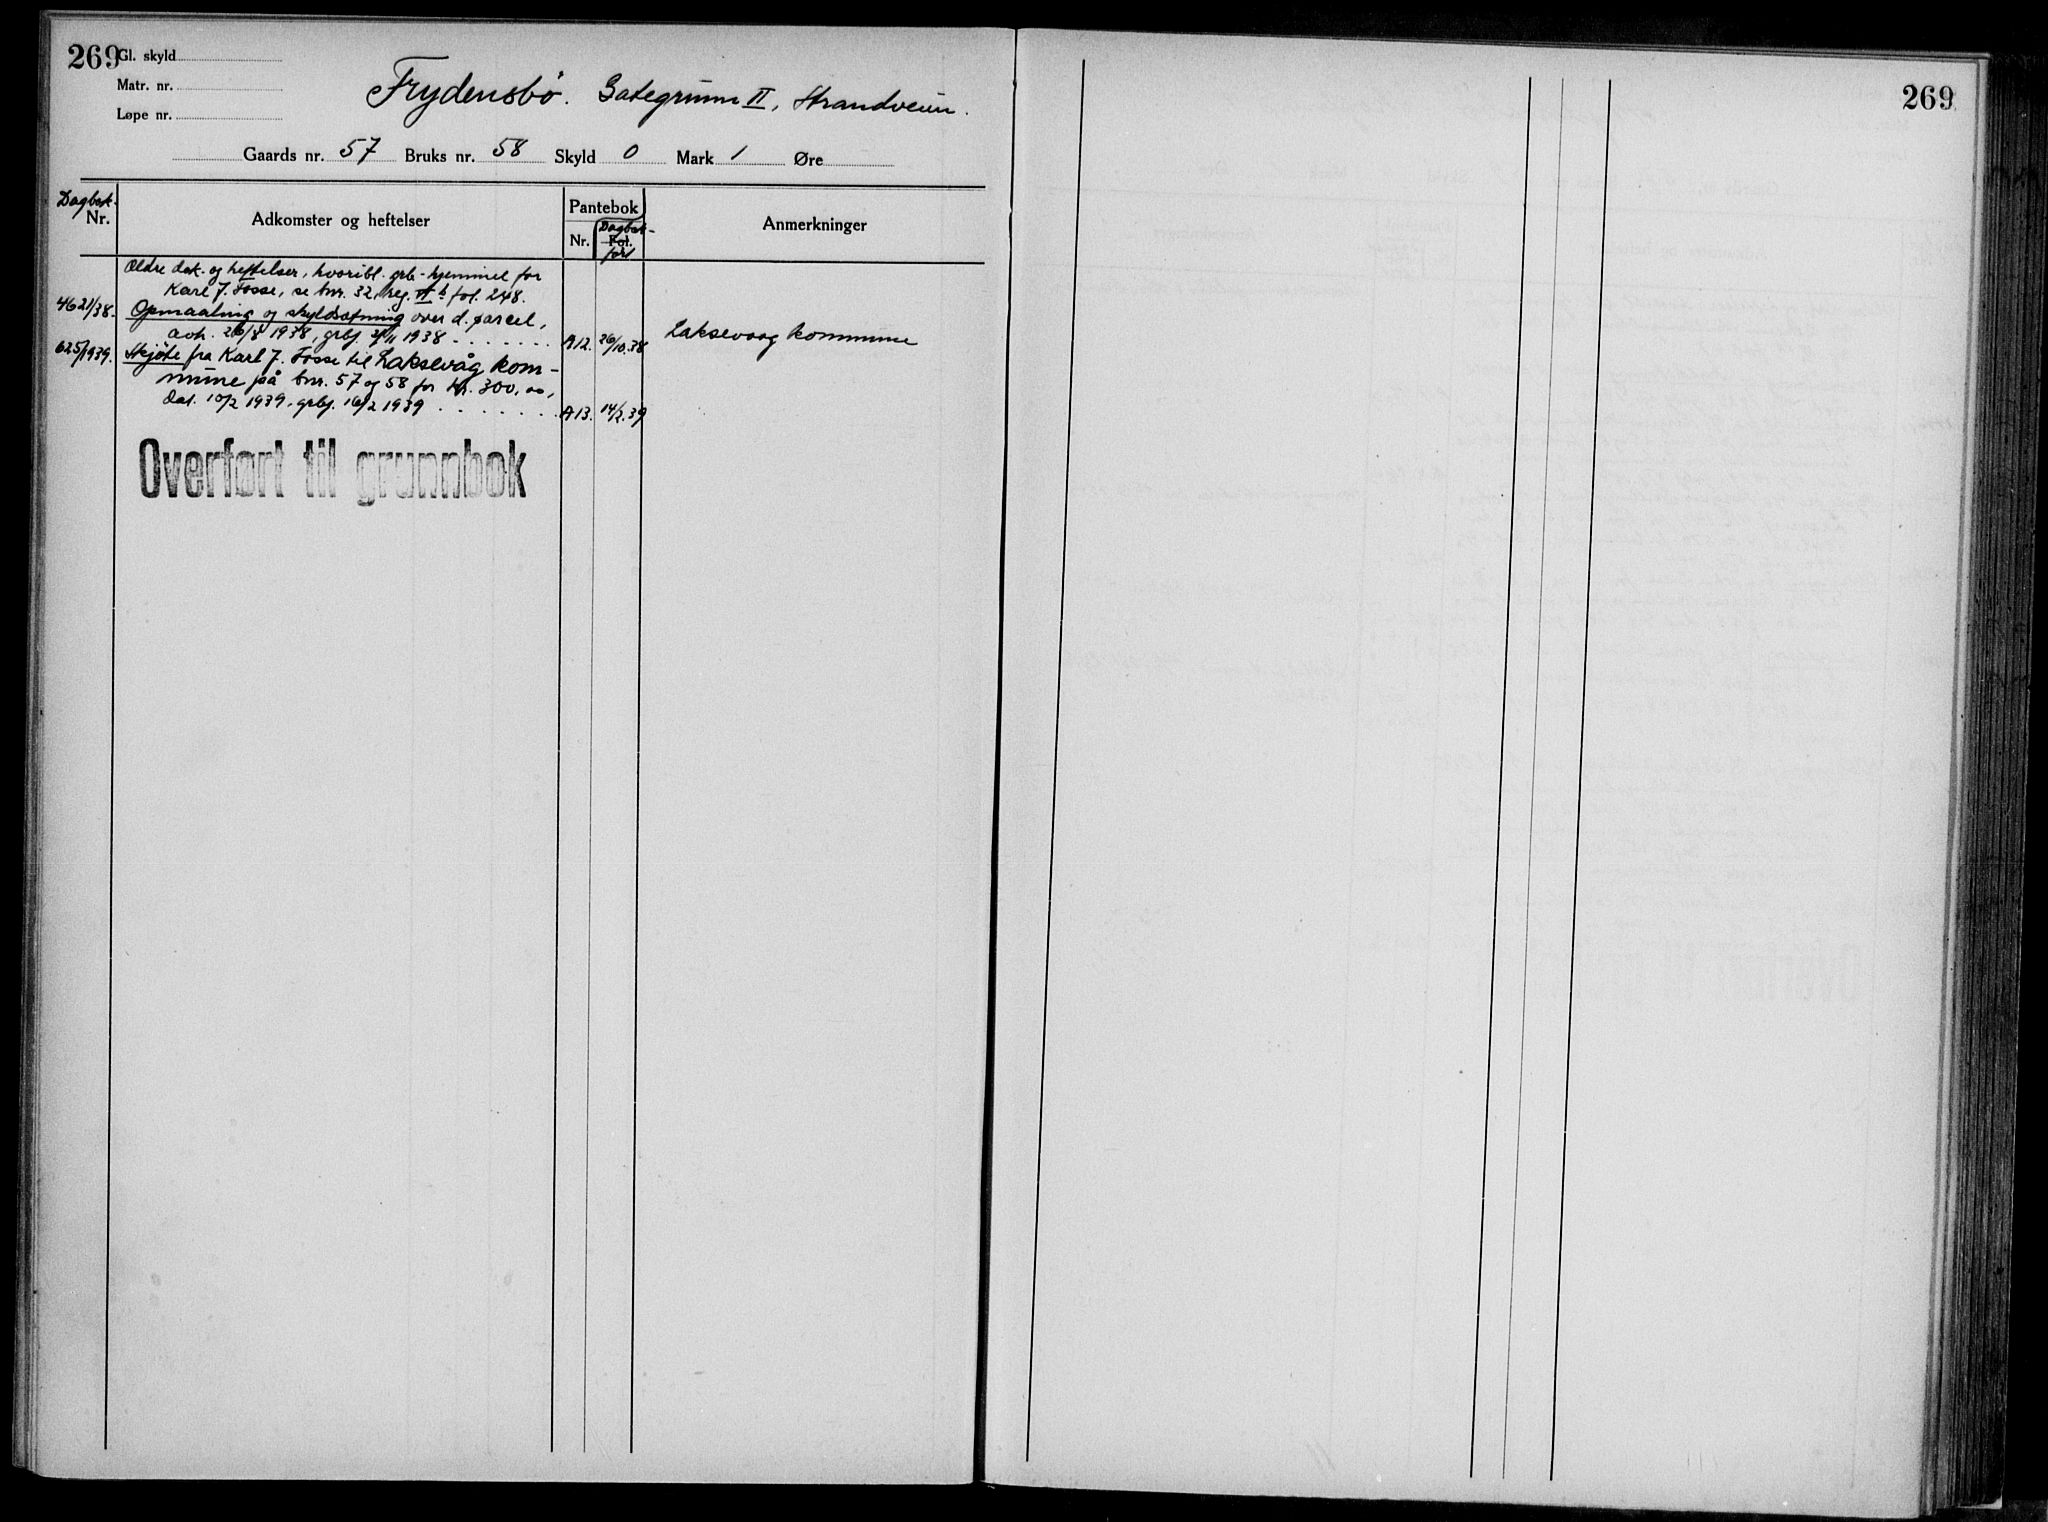 269
Gl. skyld
Matr. nr.
Løpe nr.
Frydensbø. Gategrunn II, Strandveien.
Gaards nr. 57 Bruks nr. 58 Skyld 0 Mark 1 Øre
Dagbok-
Nr.
Adkomster og heftelser
Pantebok
Nr.
Dagbok-
Fol.
ført
Anmerkninger
Ældre dok. og heftelser, hvoribl. grb-hjemmel for
Karl J. Fosse, se bnr. 32, reg. fol. 248.
4621/38. Opmaaling og skyldsætning over d. parcel,
avh. 1938, grbj. 1938 A12. 26/10.38 Laksevaag kommune
625/1939. Skjøte fra Karl J. Fosse til Laksevåg kom-
mune på bnr. 57 og 58 for kr. 300,00,
dat. 10/2 1939, grbj. 16/2 1939 A13. 14/2.39
Overført til grunnbok
269